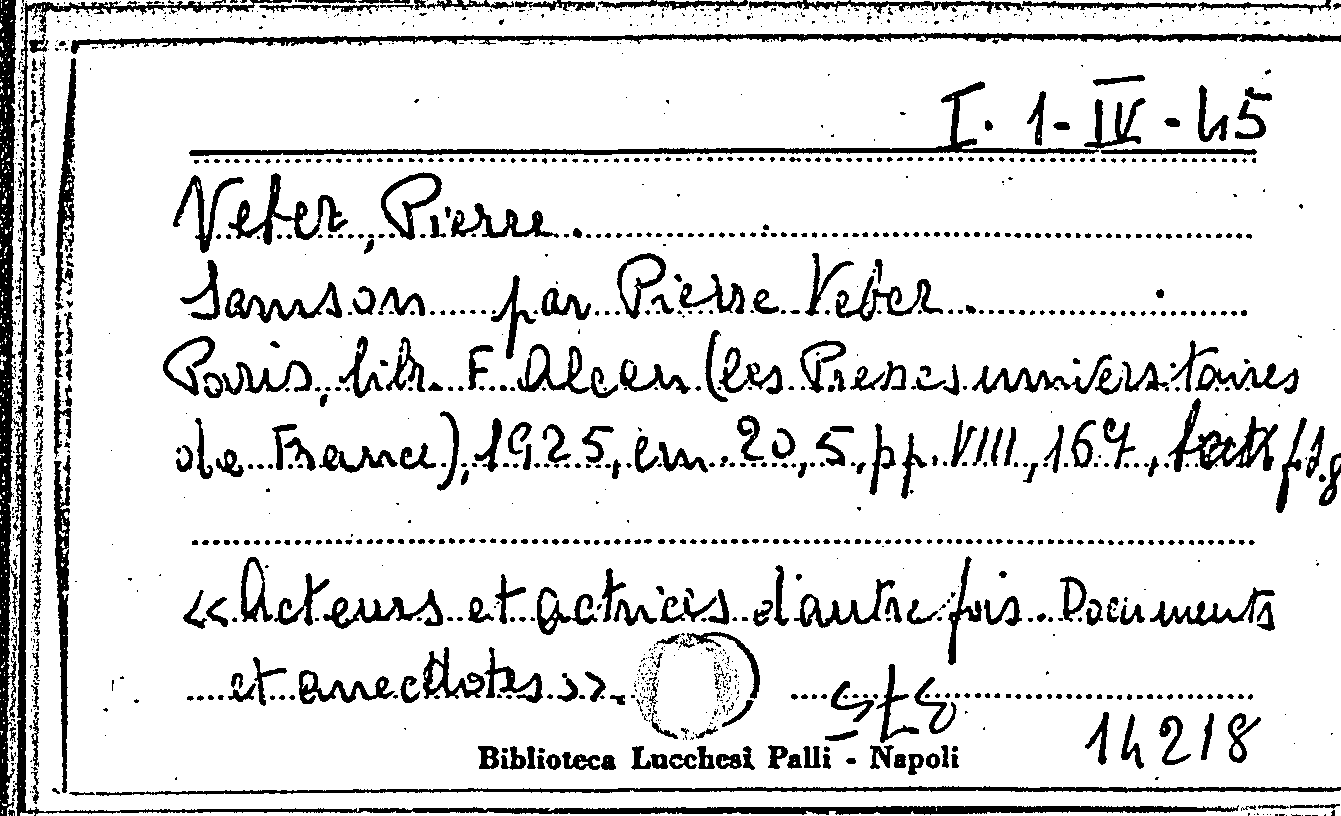 I. 1-IV-45
Veber, Pierre.
Samson par Pierre Veber.
Paris, libr. F. Alcan (les Presses universitaires
de France), 1925, cm. 20,5, pp. VIII, 167,
«Acteurs et actrices d'autrefois. Documents
et anecdotes».
Biblioteca Lucchesi Palli - Napoli
14218